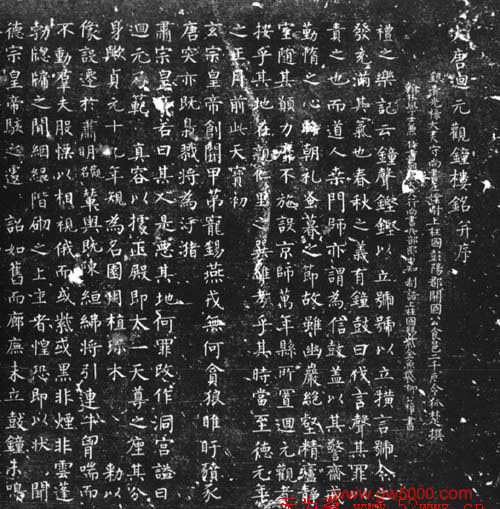 大唐迴元觀鐘樓銘并序
銀青光祿大夫守尚書左僕射上柱國彭陽郡開國公食邑二千户令狐楚撰
翰林學士兼侍書朝議大夫行尚書兵部郎中知制誥上柱國賜紫金魚袋柳公權書
禮之樂記云鐘聲鏗鏗以立號號以立橫言號令
發充滿其氣也春秋之義有鐘鼓曰伐言聲其罪
責之也而道人桑門師亦謂為信鼓蓋以其警齋
勤惰之心時朝禮早暮之節故雖幽巖絕壑精廬靜
室隨其願力靡不施設京師萬年縣所置迴元觀者
按乎其地在親仁里之巽維考乎其時當至德元年
之正月前此天寶初
玄宗皇帝創開甲第寵錫燕戎無何貪狼睢盱豶豕
唐突亦既梟戮將為汙瀦
肅宗皇帝若曰其人是惡其地何罪改作洞宮謚曰
迴元乃範真容以據正殿即太一天尊之座其分
身歟貞元十九年規為名園用植珍木敕以
像設遷於肅明觀輦輿既陳絙紼將引連牛胷喘而
不動羣夫股慄以相視俄而或紫或黑非煙非雲蓬
勃牕牖之間絪縕階砌之上主者惶恐即以狀聞
德宗皇帝駭之遽詔如舊而廊廡未立鼓鐘未鳴